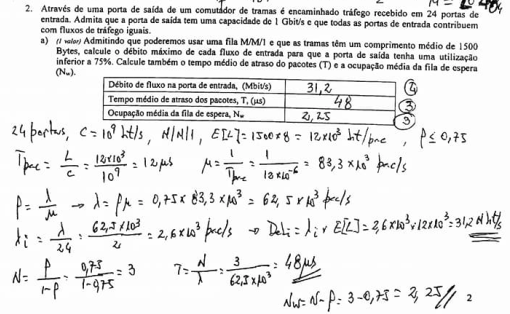 2. Através de uma porta de saída de um comutador de tramas é encaminhado tráfego recebido em 24 portas de
entrada. Admita que a porta de saída tem uma capacidade de 1 Gbit/s e que todas as portas de entrada contribuem
com fluxos de tráfego iguais.
a) (1 valor) Admitindo que poderemos usar uma fila M/M/1 e que as tramas têm um comprimento médio de 1500
Bytes, calcule o débito máximo de cada fluxo de entrada para que a porta de saída tenha uma utilização
inferior a 75%. Calcule também o tempo médio de atraso do pacotes (T) e a ocupação média da fila de espera
(Nw).
Débito de fluxo na porta de entrada, (Mbit/s) 31,2 2
Tempo médio de atraso dos pacotes, T, (µs) 48 3
Ocupação média da fila de espera, Nw 2,25 3
24 portas, C = 10⁹ bit/s, M/M/1, E[L] = 1500×8 = 12×10³ bit/pac, ρ ≤ 0,75
Tpac = L/C = 12×10³/10⁹ = 12 µs µ = 1/Tpac = 1/12×10⁻⁶ = 83,3×10³ pac/s
ρ = λ/µ → λ = ρµ = 0,75 × 83,3×10³ = 62,5×10³ pac/s
λi = λ/24 = 62,5×10³/24 = 2,6×10³ pac/s → Debi = λi × E[L] = 2,6×10³ × 12×10³ = 31,2 Mbit/s
N = ρ/1-ρ = 0,75/1-0,75 = 3 T = N/λ = 3/62,5×10³ = 48 µs
Nw = N-ρ = 3-0,75 = 2,25 // 2